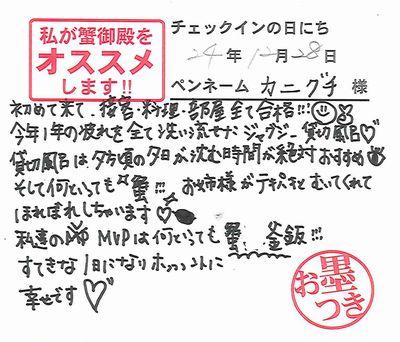 私が蟹御殿を
オススメ
します!!
チェックインの日にち
24年12月28日
ペンネーム カニグチ 様
初めて来て、接客・料理・部屋全て合格!!!
今年1年の疲れを全て洗い流せたジャグジー貸切風呂♡
貸切風呂は夕方頃の夕日が沈む時間が絶対おすすめ
そして何といっても蟹!!! お姉様がテキパキとむいてくれて
ほれぼれしちゃいます♡
私達の MVPは何といっても蟹釜飯!!!
すてきな1日になりホントに
幸せです♡
お墨つき